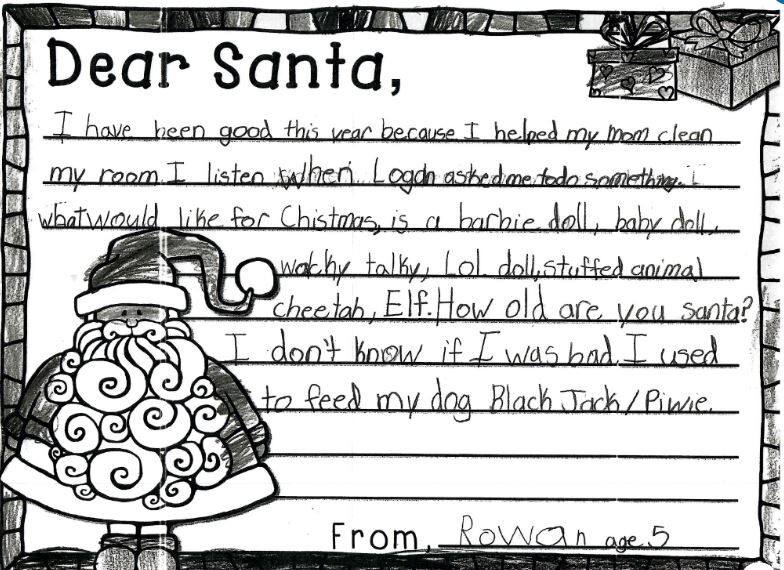 Dear Santa,
I have been good this year because I helped my Mom clean
my room I listen when Logan asked me to do something.
what would like for Chistmas, is a barbie doll, baby doll,
walky talky, Lol doll, stuffed animal
cheetah, Elf. How old are you santa?
I don't know if I was bad. I used
to feed my dog Black Jack/Piwie.
From, Rowan age 5